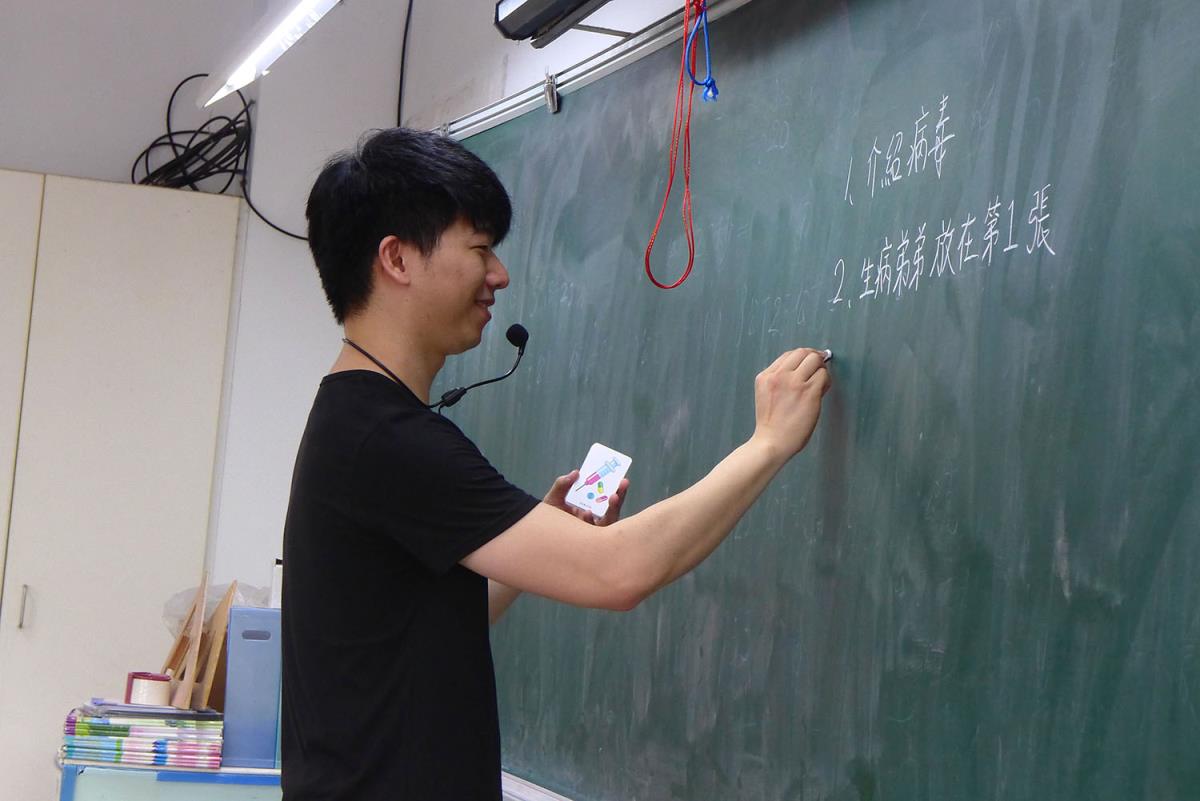 1. 介紹病毒
2. 生病弟弟放在第1張